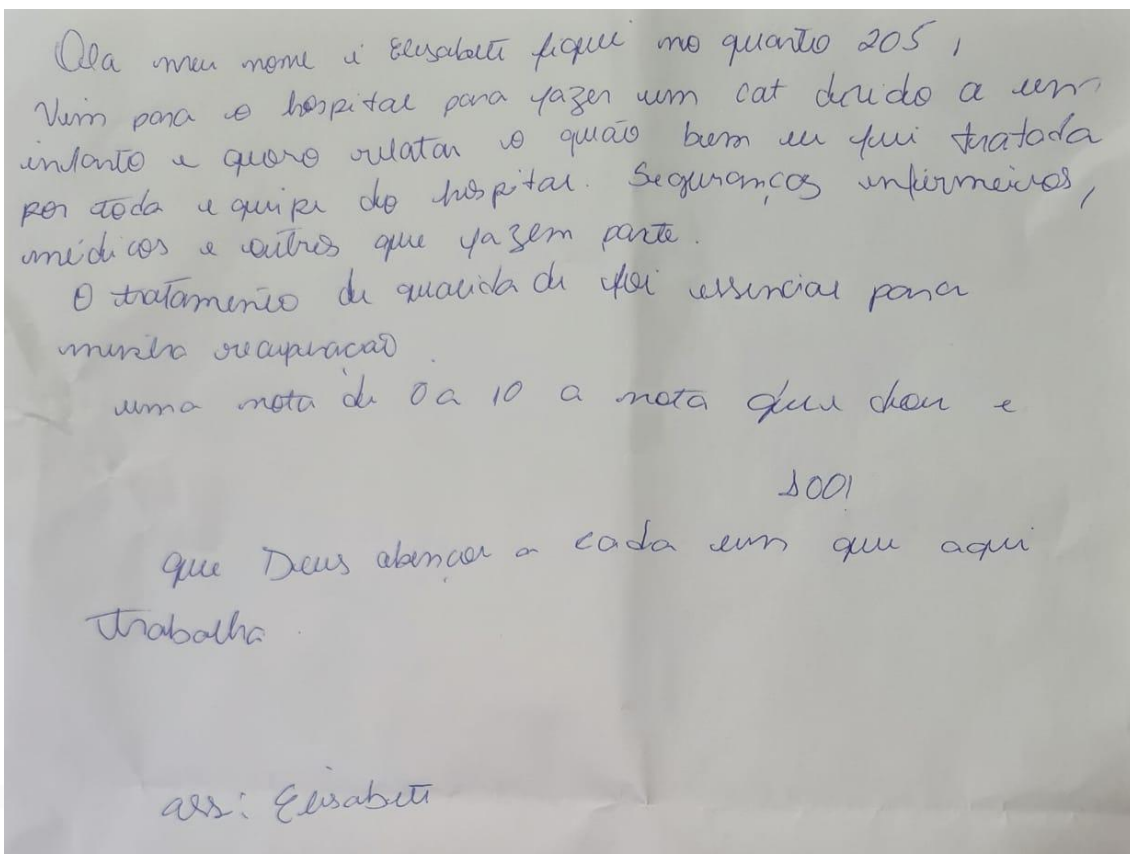 Ola meu nome é Elisabeti fiquei no quarto 205,
Vim para o hospital para fazer um cat devido a um
infarto e quero relatar o quão bem eu fui tratada
por toda equipe do hospital. Seguranças enfermeiros,
médicos e outros que fazem parte.
O tratamento de qualidade foi essencial para
minha recuperação.
uma nota de 0 a 10 a nota que dou e
100!
que Deus abençoe a cada um que aqui
trabalha.
ass: Elisabeti